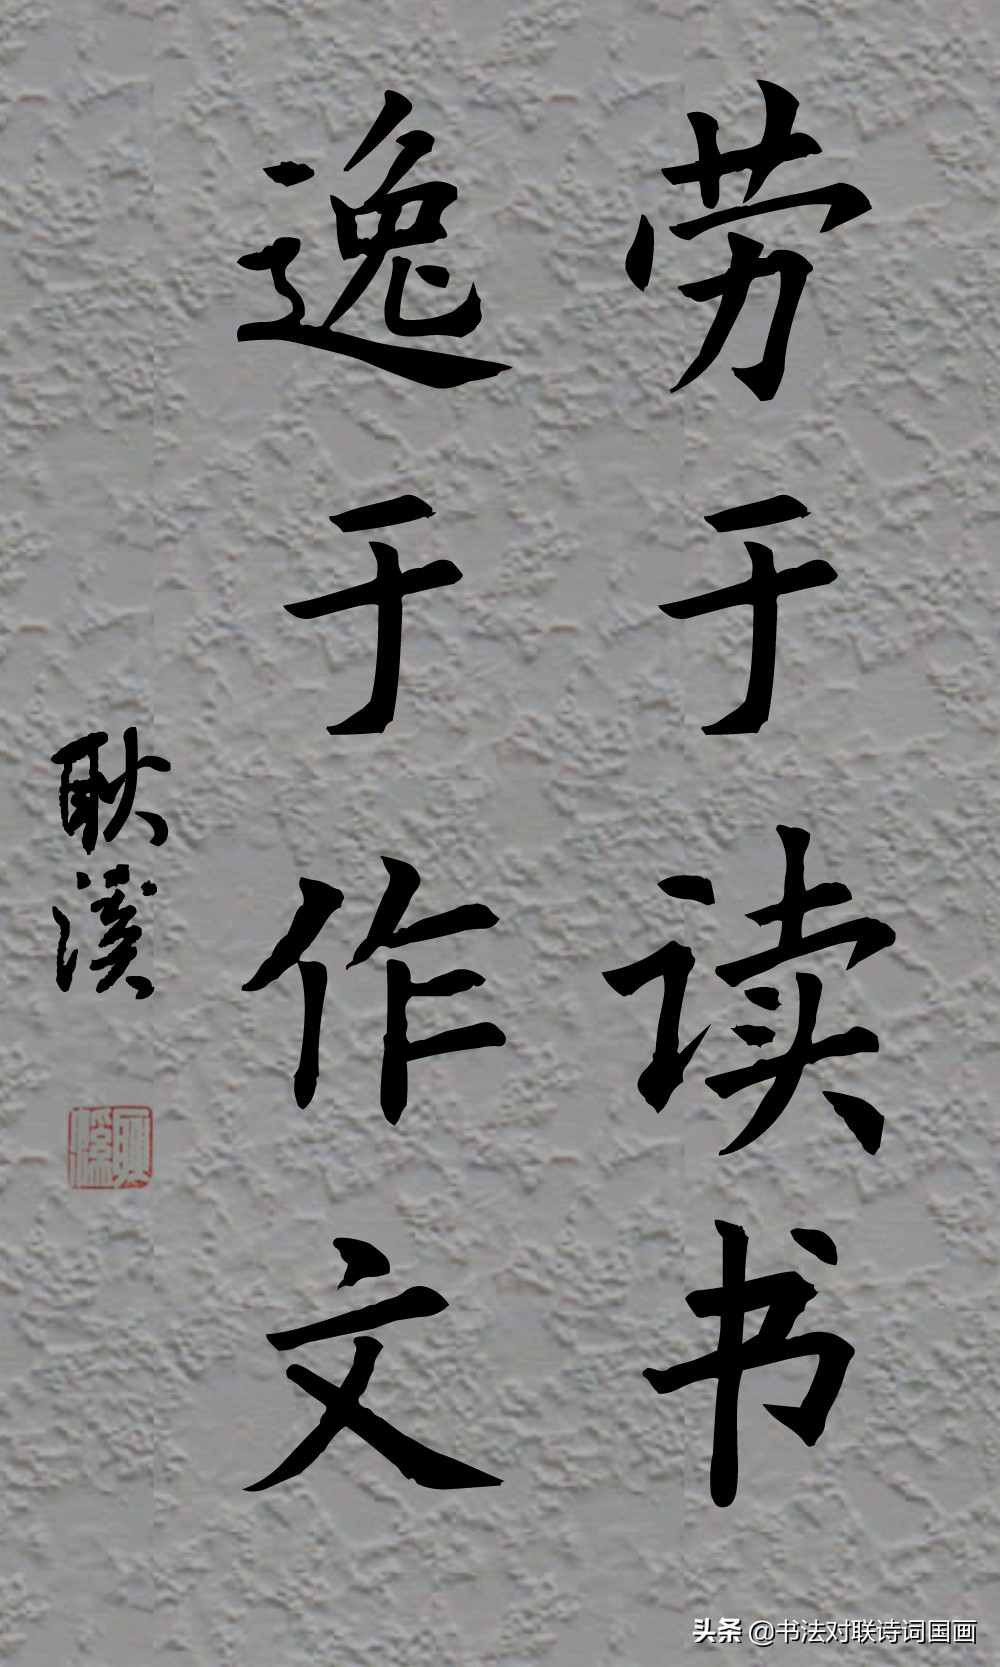 劳于读书
逸于作文
耿溪
头条 @书法对联诗词国画